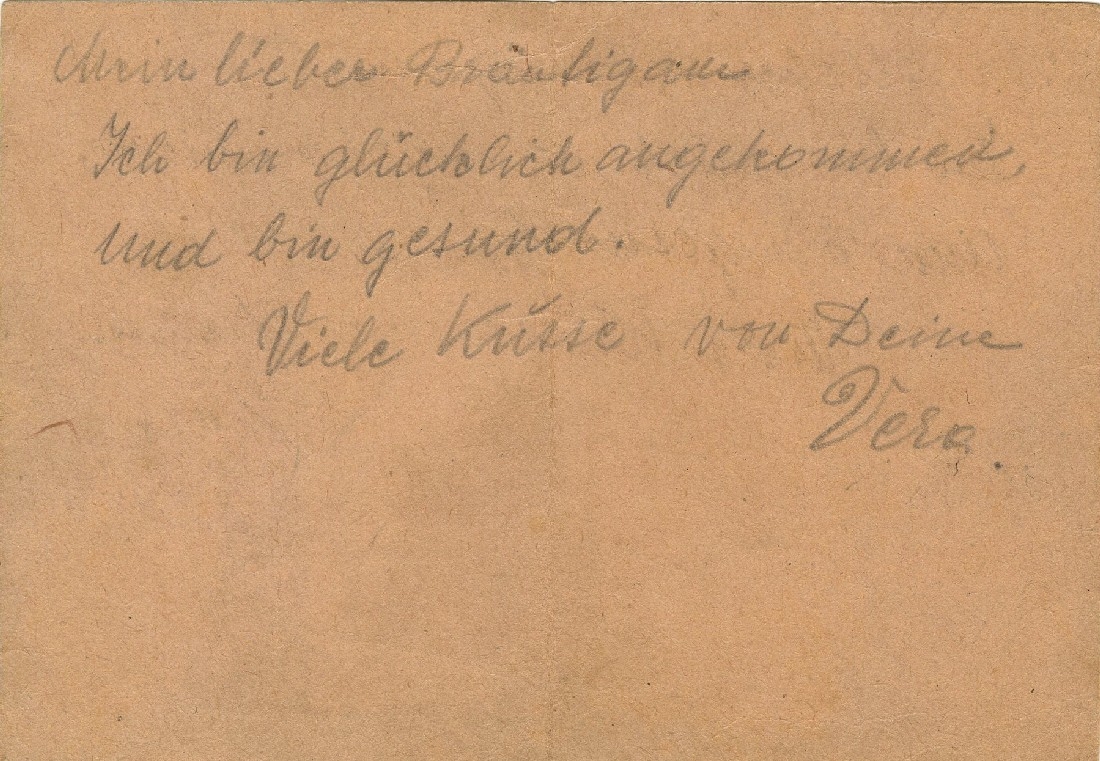 Mein lieber Bräutigam
Ich bin glücklich angekommen,
und bin gesund.
Viele Küsse von Deine
Vera.